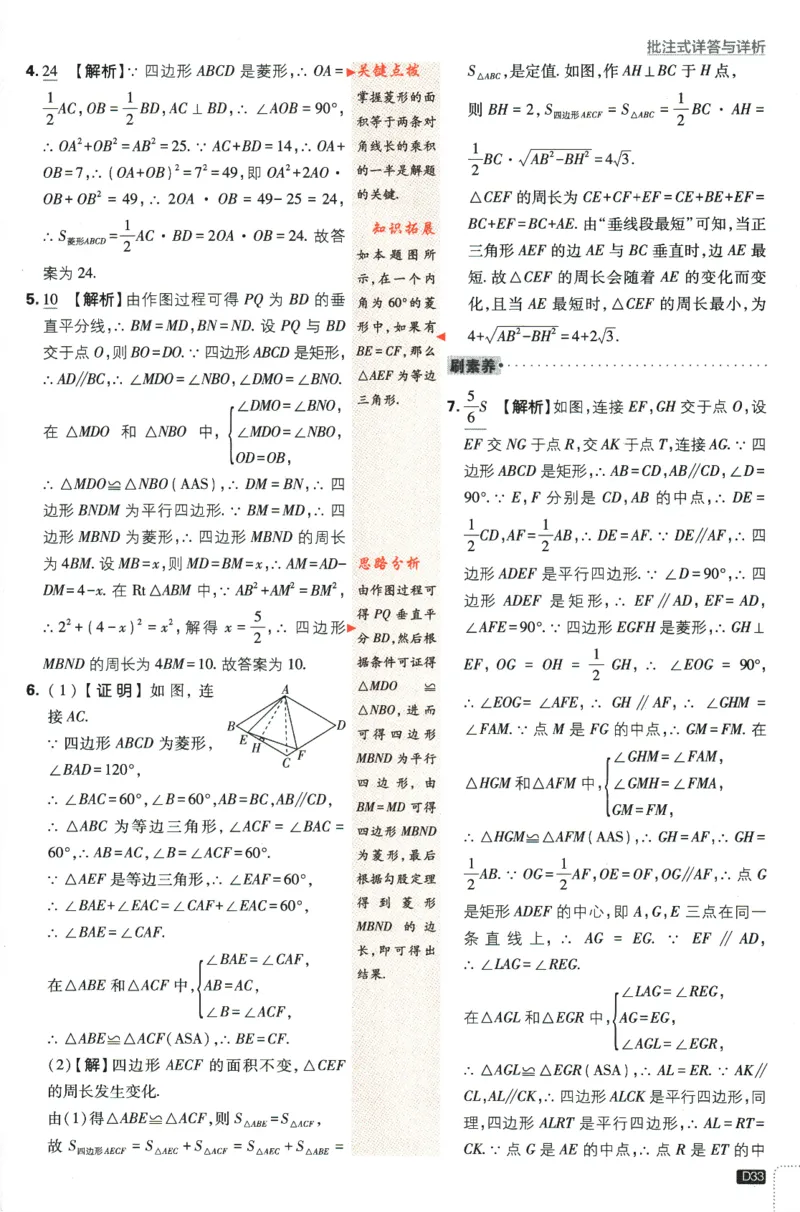 批注式详答与详析
4. 24 【解析】∵ 四边形 ABCD 是菱形,∴ OA=
1/2 AC, OB = 1/2 BD, AC ⊥ BD, ∴ ∠AOB = 90°,
∴ OA²+OB²=AB²=25. ∵ AC+BD=14,∴ OA+
OB=7,∴ (OA+OB)²=7²=49,即 OA²+2AO·
OB+OB² = 49, ∴ 2OA · OB = 49-25 = 24,
∴ S菱形ABCD = 1/2 AC·BD=2OA·OB=24. 故答
案为 24.
5. 10 【解析】由作图过程可得 PQ 为 BD 的垂
直平分线,∴ BM=MD,BN=ND. 设 PQ 与 BD
交于点 O,则 BO=DO. ∵ 四边形 ABCD 是矩形,
∴ AD∥BC,∴ ∠MDO=∠NBO,∠DMO=∠BNO.
在 △MDO 和 △NBO 中, { ∠DMO=∠BNO,
∠MDO=∠NBO,
OD=OB,
∴ △MDO≌△NBO(AAS),∴ DM=BN,∴ 四
边形 BNDM 为平行四边形. ∵ BM=MD,∴ 四
边形 MBND 为菱形,∴ 四边形 MBND 的周长
为 4BM. 设 MB=x,则 MD=BM=x,∴ AM=AD-
DM=4-x. 在 Rt△ABM 中,∵ AB²+AM²=BM²,
∴ 2²+(4-x)²=x²,解得 x=5/2,∴ 四边形
MBND 的周长为 4BM=10. 故答案为 10.
6. (1)【证明】如图,连
接 AC.
A
B
D
E
H
F
C
∵ 四边形 ABCD 为菱形,
∠BAD=120°,
∴ ∠BAC=60°,∠B=60°,AB=BC,AB∥CD,
∴ △ABC 为等边三角形,∠ACF=∠BAC=
60°,∴ AB=AC,∠B=∠ACF=60°.
∵ △AEF 是等边三角形,∴ ∠EAF=60°,
∴ ∠BAE+∠EAC=∠CAF+∠EAC=60°,
∴ ∠BAE=∠CAF.
在△ABE 和△ACF 中, { ∠BAE=∠CAF,
AB=AC,
∠B=∠ACF,
∴ △ABE≌△ACF(ASA),∴ BE=CF.
(2)【解】四边形 AECF 的面积不变,△CEF
的周长发生变化.
由(1)得△ABE≌△ACF,则 S△ABE=S△ACF,
故 S四边形AECF = S△AEC+S△ACF = S△AEC+S△ABE =
关键点拨
掌握菱形的面
积等于两条对
角线长的乘积
的一半是解题
的关键.
知识拓展
如本题图所
示,在一个内
角为 60°的菱
形中,如果有
BE=CF,那么
△AEF 为等边
三角形.
思路分析
由作图过程可
得 PQ 垂直平
分 BD,然后根
据条件可证得
△MDO ≌
△NBO,进而
可得四边形
MBND 为平行
四边形,由
BM=MD 可得
四边形 MBND
为菱形,最后
根据勾股定理
得到菱形
MBND 的边
长,即可得出
结果.
S△ABC,是定值. 如图,作 AH⊥BC 于 H 点,
则 BH=2, S四边形AECF = S△ABC = 1/2 BC·AH=
1/2 BC·√(AB²-BH²)=4√3.
△CEF 的周长为 CE+CF+EF=CE+BE+EF=
BC+EF=BC+AE. 由“垂线段最短”可知,当正
三角形 AEF 的边 AE 与 BC 垂直时,边 AE 最
短. 故△CEF 的周长会随着 AE 的变化而变
化,且当 AE 最短时,△CEF 的周长最小,为
4+√(AB²-BH²)=4+2√3.
刷素养
7. 5/6 S 【解析】如图,连接 EF,GH 交于点 O,设
EF 交 NG 于点 R,交 AK 于点 T,连接 AG. ∵ 四
边形 ABCD 是矩形,∴ AB=CD,AB∥CD,∠D=
90°. ∵ E, F 分别是 CD, AB 的中点,∴ DE=
1/2 CD,AF=1/2 AB,∴ DE=AF. ∵ DE∥AF,∴ 四
边形 ADEF 是平行四边形. ∵ ∠D=90°,∴ 四
边形 ADEF 是矩形,∴ EF∥AD, EF=AD,
∠AFE=90°. ∵ 四边形 EGFH 是菱形,∴ GH⊥
EF, OG = OH = 1/2 GH, ∴ ∠EOG = 90°,
∴ ∠EOG=∠AFE, ∴ GH∥AF, ∴ ∠GHM =
∠FAM. ∵ 点 M 是 FG 的中点,∴ GM=FM. 在
△HGM 和△AFM 中, { ∠GHM=∠FAM,
∠GMH=∠FMA,
GM=FM,
∴ △HGM≌△AFM(AAS),∴ GH=AF,∴ GH=
1/2 AB. ∵ OG=1/2 AF,OE=OF,OG∥AF,∴ 点 G
是矩形 ADEF 的中心,即 A,G,E 三点在同一
条直线上,∴ AG = EG. ∵ EF∥AD,
∴ ∠LAG=∠REG.
在△AGL 和△EGR 中, { ∠LAG=∠REG,
AG=EG,
∠AGL=∠EGR,
∴ △AGL≌△EGR(ASA),∴ AL=ER. ∵ AK∥
CL,AL∥CK,∴ 四边形 ALCK 是平行四边形,同
理,四边形 ALRT 是平行四边形,∴ AL=RT=
CK. ∵ 点 G 是 AE 的中点,∴ 点 R 是 ET 的中
D33